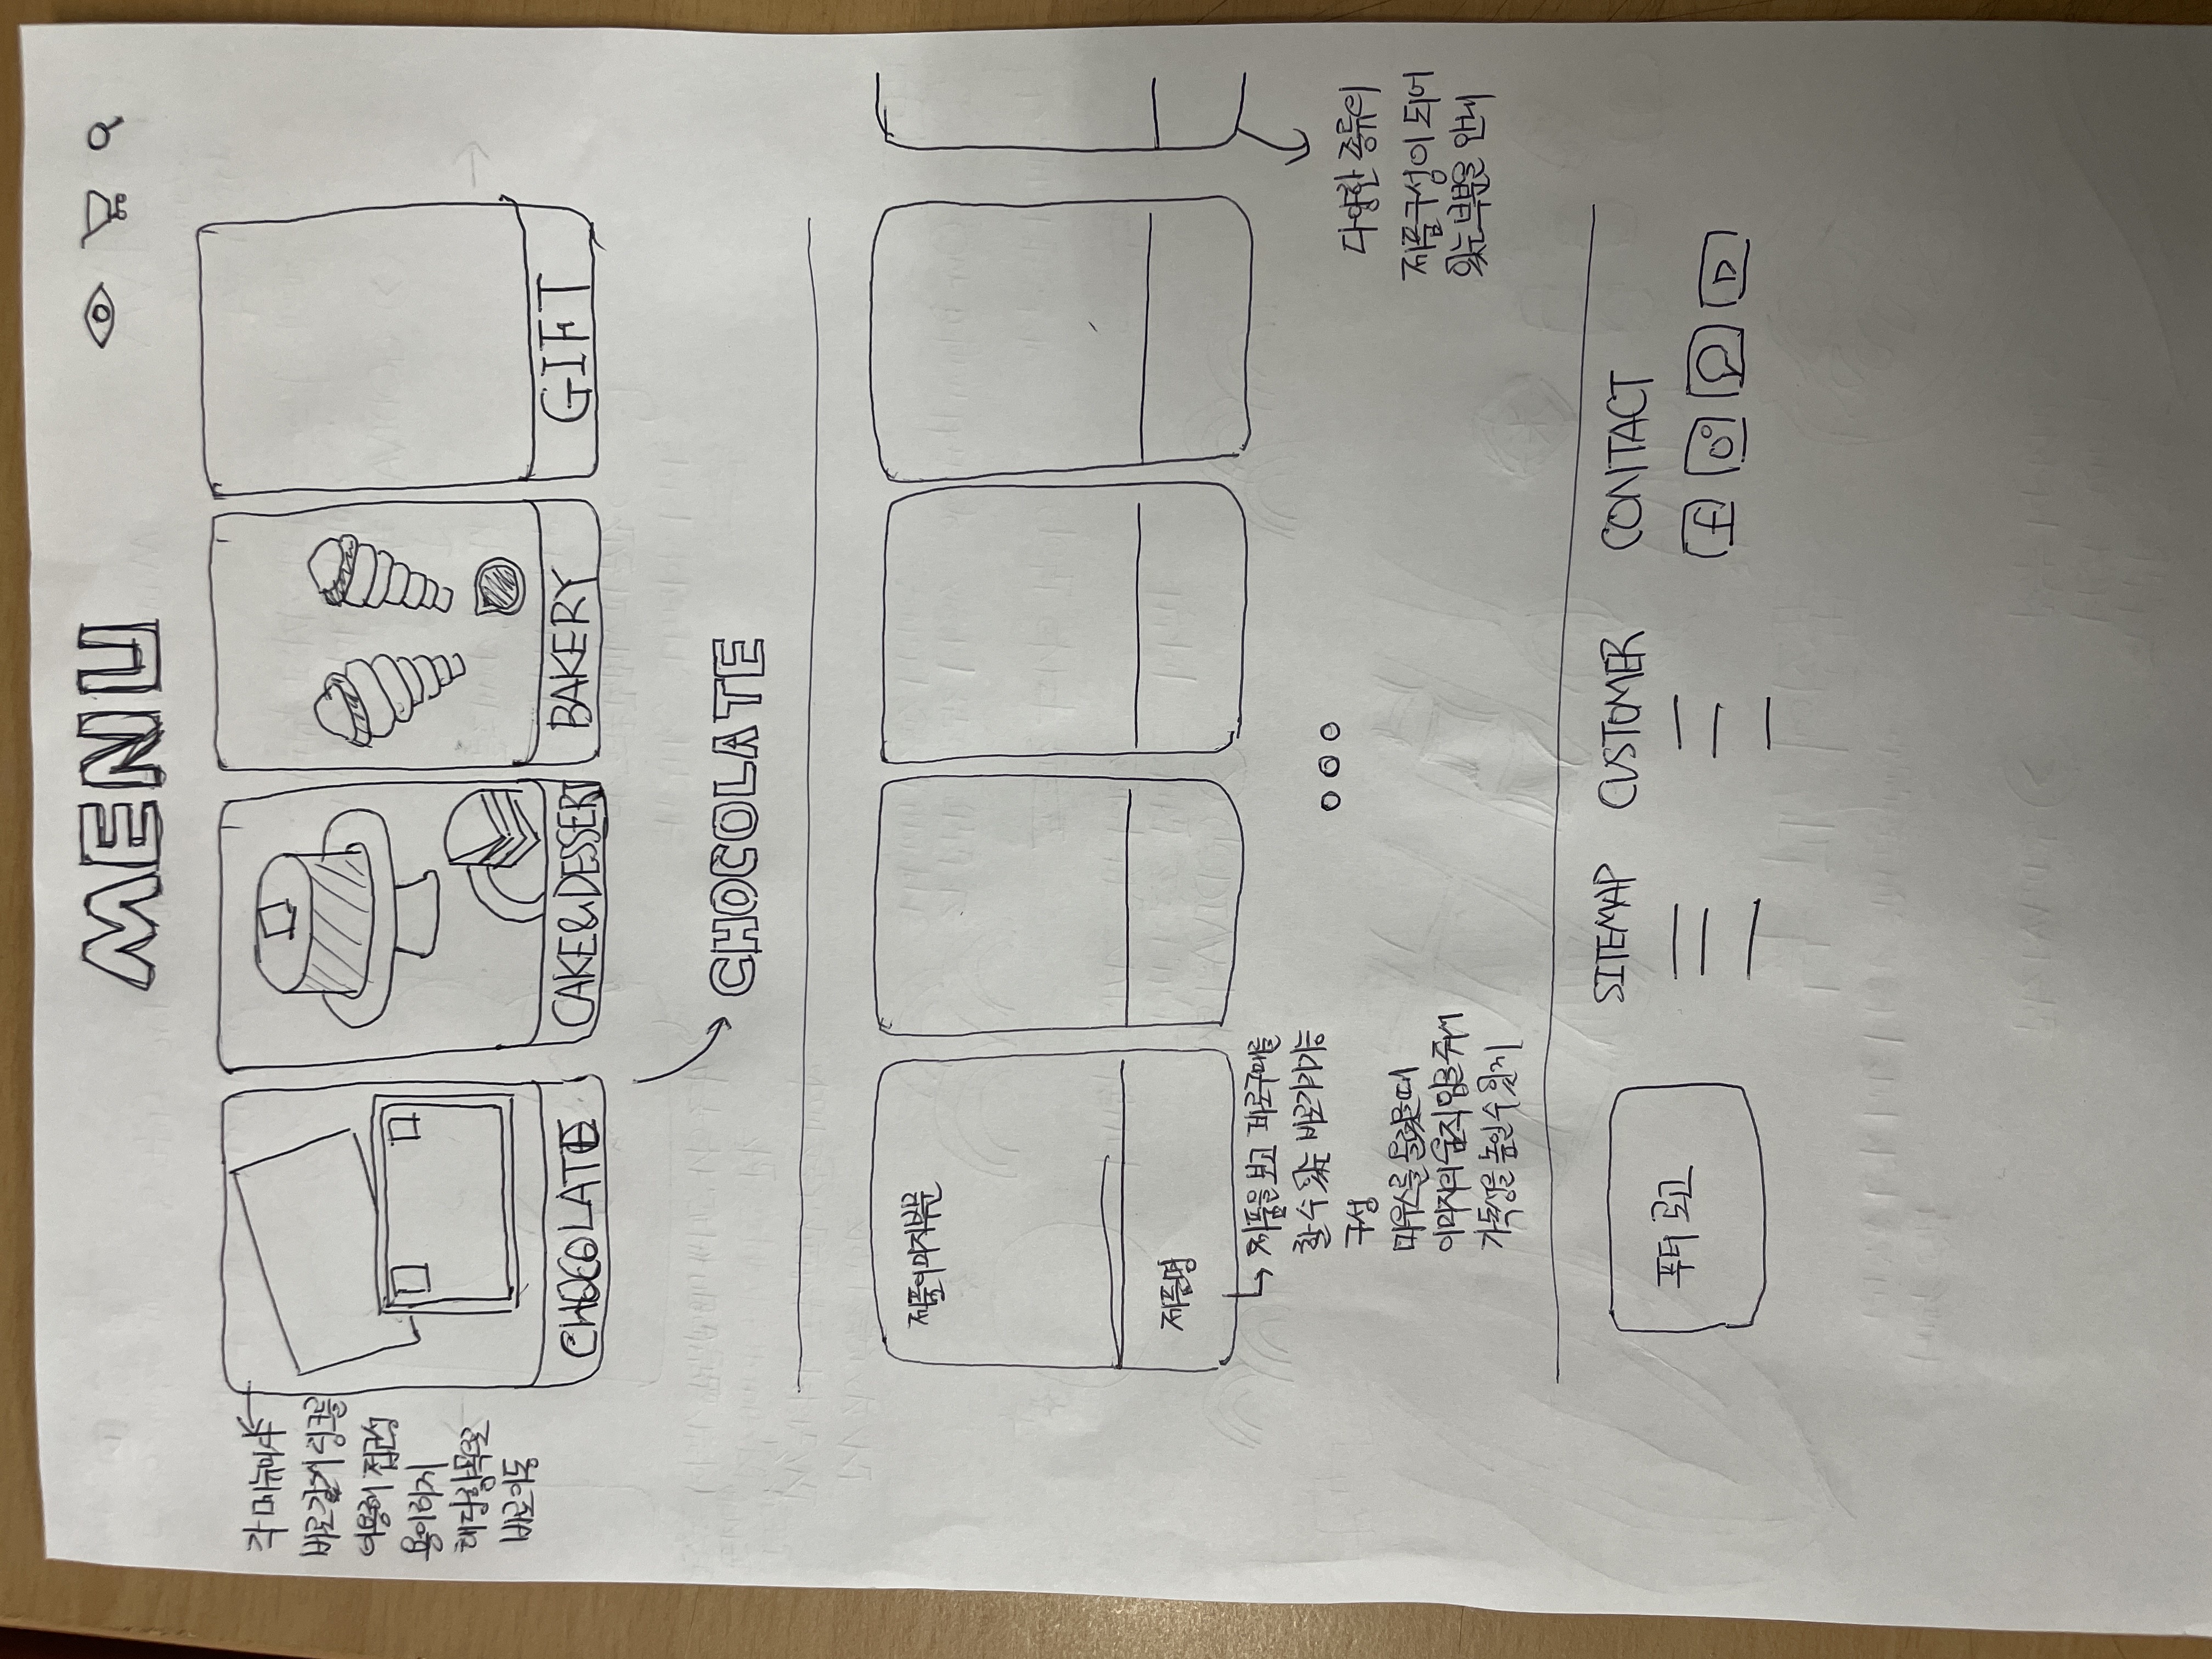 MENU
각 메뉴마다
바로갈게 링크를
이용해 접근성
용이하게
해당항목으로
바로이동
CHOCOLATE
CAKE&DESSERT
BAKERY
GIFT
CHOCOLATE
제품이미지부분
제품명
제품을 보고 바로구매를
할 수 있는 바로가기기능
구성
마우스를 올렸을 때
이미지의 움직임을 줘서
가독성을 높일 수 있게
다양한 종류의
제품구성이 되어
있는 부분을 안내
푸터 로고
SITEMAP
CUSTOMER
CONTACT